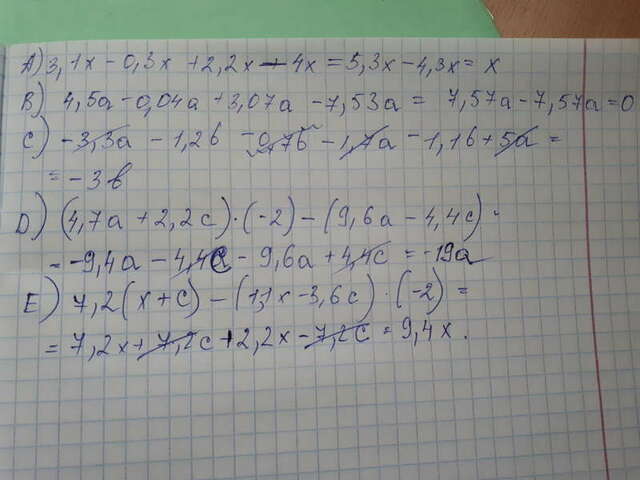 A) 3,1x - 0,3x + 2,2x - 4x = 5,3x - 4,3x = x
B) 4,5a - 0,04a + 3,07a - 7,53a = 7,57a - 7,57a = 0
C) -3,3a - 1,2b - 0,7b - 1,7a - 1,1b + 5a =
= -3b
D) (4,7a + 2,2c)·(-2) - (9,6a - 4,4c) =
= -9,4a - 4,4c - 9,6a + 4,4c = -19a
E) 7,2(x+c) - (1,1x - 3,6c)·(-2) =
= 7,2x + 7,2c + 2,2x - 7,2c = 9,4x.